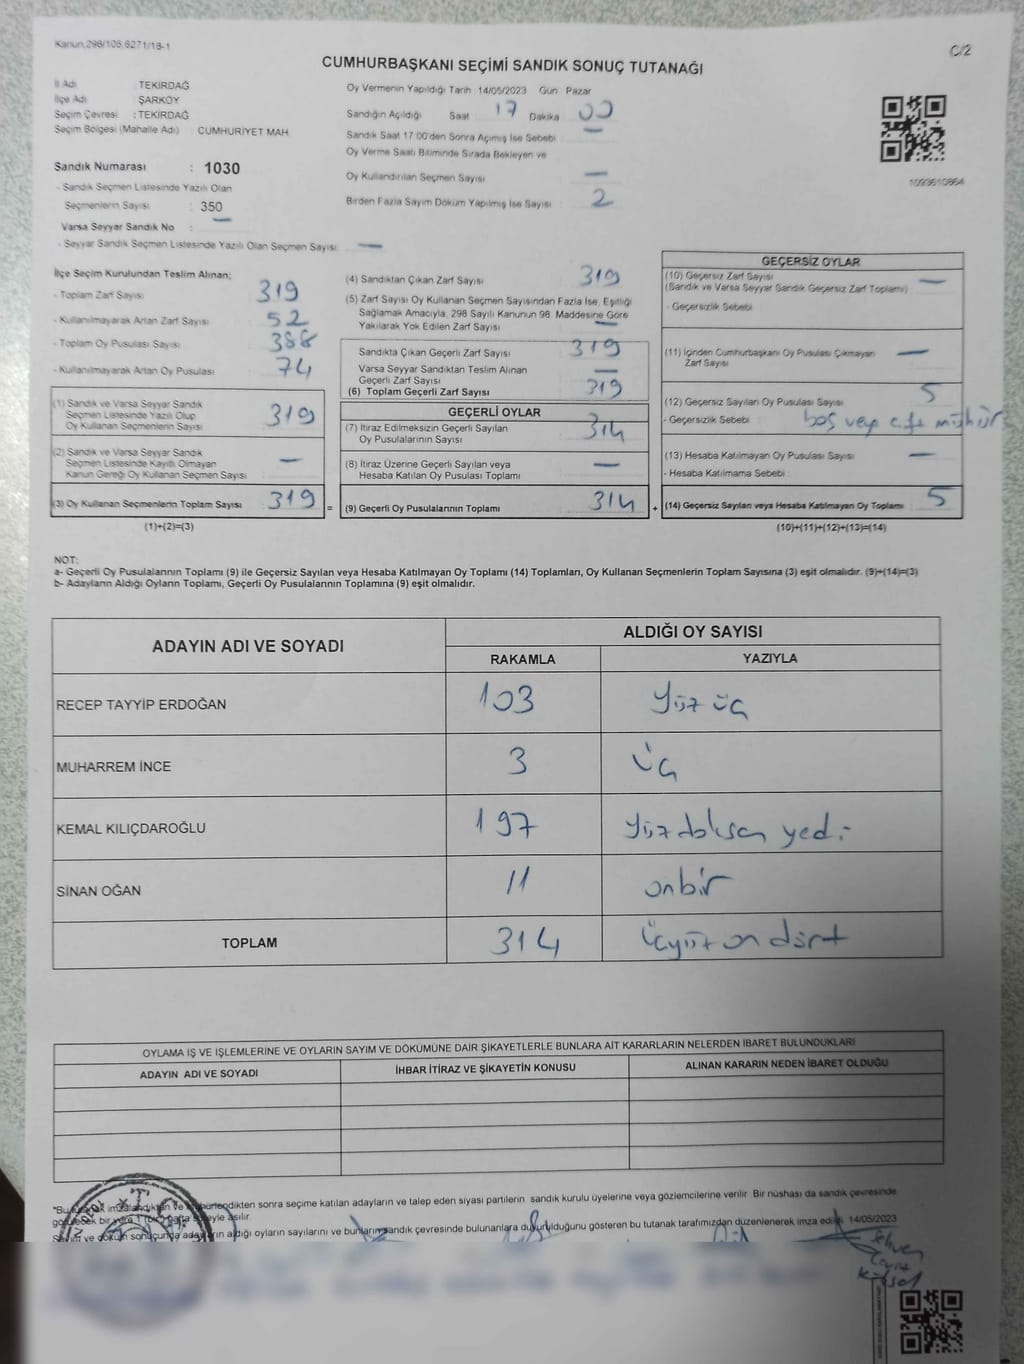 Kanun,298/106,6271/18-1
C/2
CUMHURBAŞKANI SEÇİMİ SANDIK SONUÇ TUTANAĞI
İl Adı : TEKİRDAĞ
İlçe Adı : ŞARKÖY
Seçim Çevresi : TEKİRDAĞ
Seçim Bölgesi (Mahalle Adı) : CUMHURİYET MAH.
Oy Vermenin Yapıldığı Tarih 14/05/2023 Gün : Pazar
Sandığın Açıldığı Saat 17 Dakika 00
Sandık Saat 17:00'den Sonra Açımış İse Sebebi : —
Oy Verme Saati Bitiminde Sırada Bekleyen ve
Oy Kullandırılan Seçmen Sayısı : —
Birden Fazla Sayım Döküm Yapılmış İse Sayısı : 2
1093610864
Sandık Numarası : 1030
- Sandık Seçmen Listesinde Yazılı Olan
Seçmenlerin Sayısı : 350
Varsa Seyyar Sandık No : —
- Seyyar Sandık Seçmen Listesinde Yazılı Olan Seçmen Sayısı: —
İlçe Seçim Kurulundan Teslim Alınan;
- Toplam Zarf Sayısı 319
- Kullanılmayarak Artan Zarf Sayısı 52
- Toplam Oy Pusulası Sayısı 388
- Kullanılmayarak Artan Oy Pusulası 74
(1) Sandık ve Varsa Seyyar Sandık
Seçmen Listesinde Yazılı Olup
Oy Kullanan Seçmenlerin Sayısı 319
(2) Sandık ve Varsa Seyyar Sandık
Seçmen Listesinde Kayıtlı Olmayan
Kanun Gereği Oy Kullanan Seçmen Sayısı —
(3) Oy Kullanan Seçmenlerin Toplam Sayısı 319
(1)+(2)=(3)
(4) Sandıktan Çıkan Zarf Sayısı 319
(5) Zarf Sayısı Oy Kullanan Seçmen Sayısından Fazla İse, Eşitliği
Sağlamak Amacıyla, 298 Sayılı Kanunun 98. Maddesine Göre
Yakılarak Yok Edilen Zarf Sayısı —
Sandıkta Çıkan Geçerli Zarf Sayısı 319
Varsa Seyyar Sandıktan Teslim Alınan
Geçerli Zarf Sayısı —
(6) Toplam Geçerli Zarf Sayısı 319
GEÇERLİ OYLAR
(7) İtiraz Edilmeksizin Geçerli Sayılan
Oy Pusulalarının Sayısı 314
(8) İtiraz Üzerine Geçerli Sayılan veya
Hesaba Katılan Oy Pusulası Toplamı —
= (9) Geçerli Oy Pusulalarının Toplamı 314
GEÇERSİZ OYLAR
(10) Geçersiz Zarf Sayısı —
(Sandık ve Varsa Seyyar Sandık Geçersiz Zarf Toplamı)
- Geçersizlik Sebebi :
(11) İçinden Cumhurbaşkanı Oy Pusulası Çıkmayan —
Zarf Sayısı
(12) Geçersiz Sayılan Oy Pusulası Sayısı 5
- Geçersizlik Sebebi : boş veya çift mühür
(13) Hesaba Katılmayan Oy Pusulası Sayısı —
- Hesaba Katılmama Sebebi :
+ (14) Geçersiz Sayılan veya Hesaba Katılmayan Oy Toplamı 5
(10)+(11)+(12)+(13)=(14)
NOT:
a- Geçerli Oy Pusulalarının Toplamı (9) ile Geçersiz Sayılan veya Hesaba Katılmayan Oy Toplamı (14) Toplamları, Oy Kullanan Seçmenlerin Toplam Sayısına (3) eşit olmalıdır. (9)+(14)=(3)
b- Adayların Aldığı Oyların Toplamı, Geçerli Oy Pusulalarının Toplamına (9) eşit olmalıdır.
ADAYIN ADI VE SOYADI
ALDIĞI OY SAYISI
RAKAMLA YAZIYLA
RECEP TAYYİP ERDOĞAN 103 yüz üç
MUHARREM İNCE 3 üç
KEMAL KILIÇDAROĞLU 197 yüzdoksan yedi
SİNAN OĞAN 11 onbir
TOPLAM 314 üçyüz on dört
OYLAMA İŞ VE İŞLEMLERİNE VE OYLARIN SAYIM VE DÖKÜMÜNE DAİR ŞİKAYETLERLE BUNLARA AİT KARARLARIN NELERDEN İBARET BULUNDUKLARI
ADAYIN ADI VE SOYADI İHBAR İTİRAZ VE ŞİKAYETİN KONUSU ALINAN KARARIN NEDEN İBARET OLDUĞU
sonra seçime katılan adayların ve talep eden siyasi partilerin sandık kurulu üyelerine veya gözlemcilerine verilir. Bir nüshası da sandık çevresinde
asılır.
aldığı oyların sayılarını ve bunların sandık çevresinde bulunanlara duyurulduğunu gösteren bu tutanak tarafımızdan düzenlenerek imza edildi. 14/05/2023